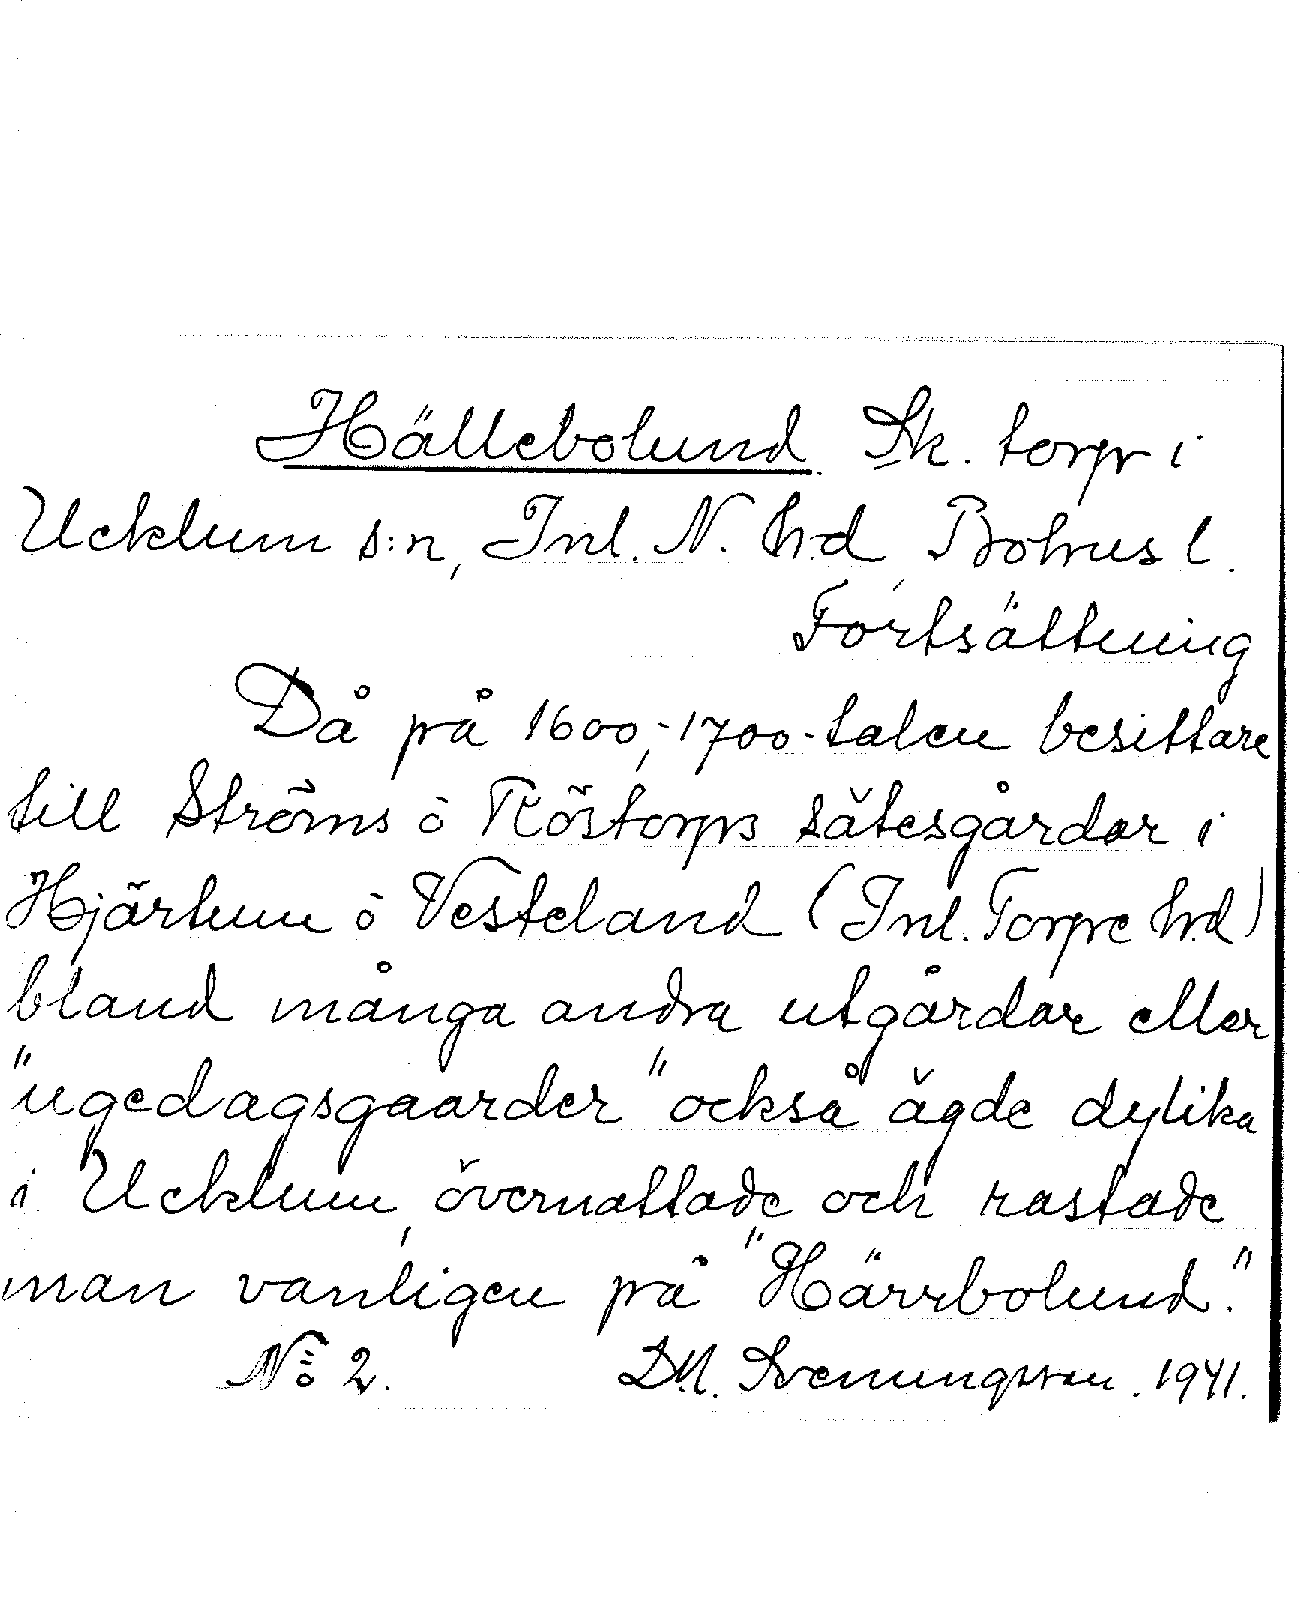 Hällebolund. Sk. torp i
Ucklum s:n, Inl. N. hd, Bohus l.
Fortsättning
Då på 1600,-1700-talen besittare
till Ströms ö Röstorps sätesgårdar i
Hjärtum ö Vesteland (Inl. Torpe hd)
bland många andra utgårdar eller
"ugedagsgaarder" också ägde dylika
i Ucklum, övernattade och rastade
man vanligen på "Härrbolund."
No 2. D.M. Svenungsson. 1941.